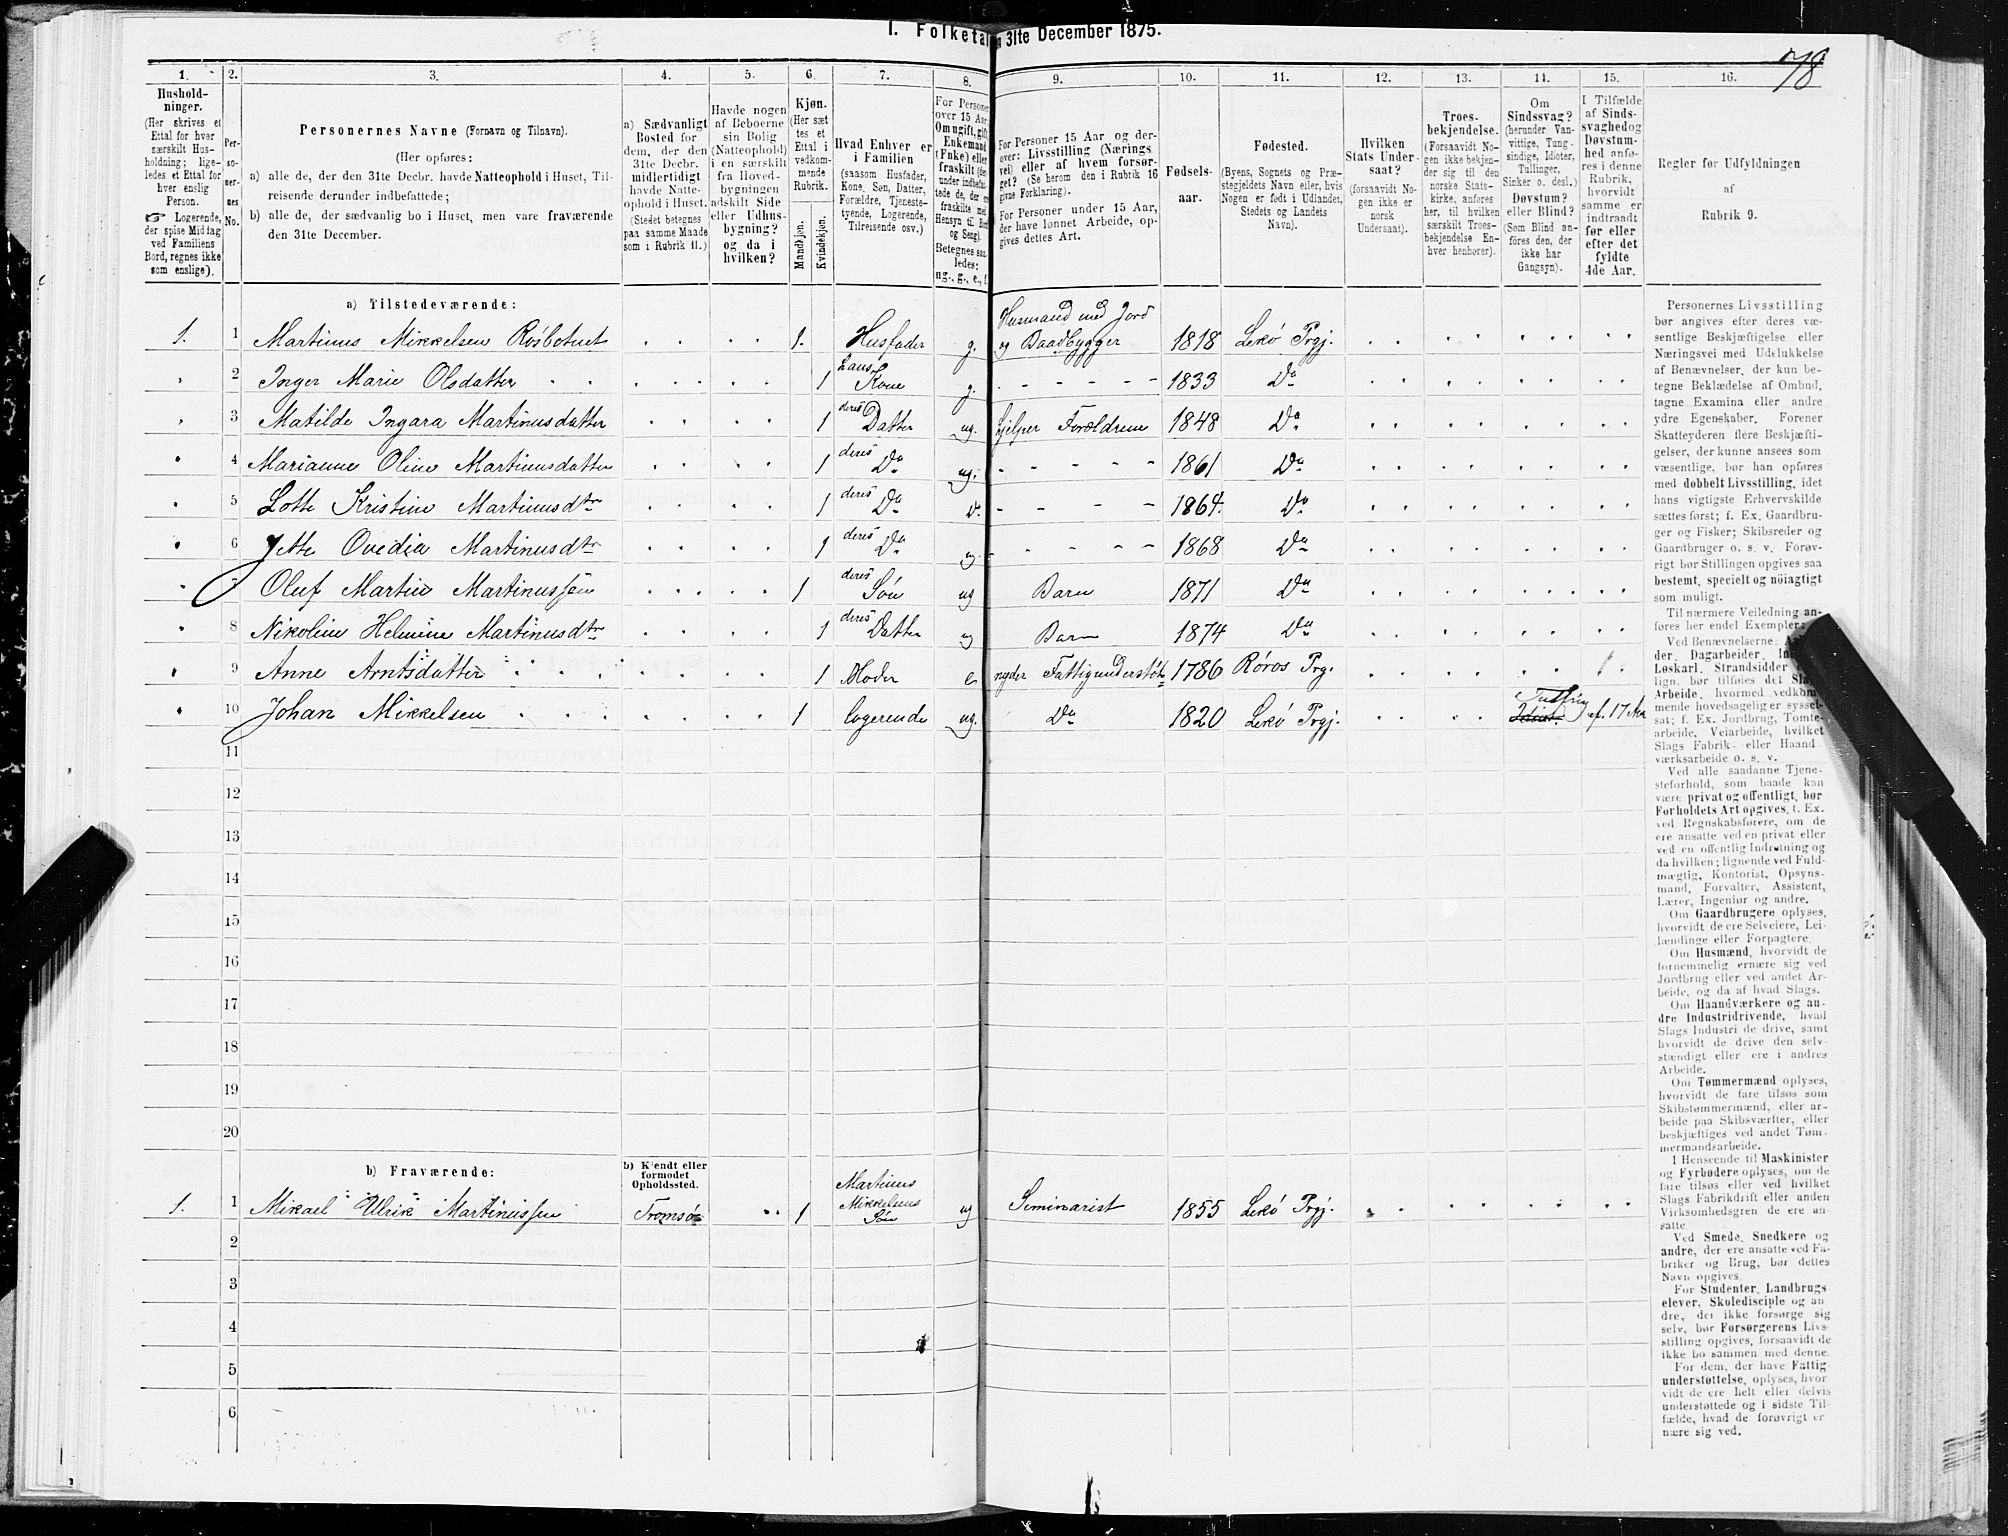 I. Folketal 31te December 1875.
78
1. 2. 3. 4. 5. 6. 7. 8. 9. 10. 11. 12. 13. 11. 15. 16.
Hushold-
ninger.
(Her skrives et
Ettal for hver
særskilt Hus-
holdning; lige-
ledes et Ettal for
hver enslig
Person.
☞ Logerende,
der spise Middag
ved Familiens
Bord, regnes ikke
som enslige).
Per-
so-
ner-
nes
No.
Personernes Navne (Fornavn og Tilnavn).
(Her opføres:
a) alle de, der den 31te Decbr. havde Natteophold i Huset, Til-
reisende derunder indbefattede;
b) alle de, der sædvanlig bo i Huset, men vare fraværende
den 31te December.
a) Sædvanligt
Bosted for
dem, der den
31te Decbr.
midlertidigt
havde Natte-
ophold i Huset.
(Stedet betegnes
paa samme Maade
som i Rubrik 11.)
Havde nogen
af Beboerne
sin Bolig
(Natteophold)
i en særskilt
fra Hoved-
bygningen
adskilt Side
eller Udhus-
bygning?
og da i
hvilken?
Kjøn.
(Her sæt
tes et
Ettal i
vedkom-
mende
Rubrik.
Mandkjøn.
Kvindekjøn.
Hvad Enhver er
i Familien
(saasom Husfader,
Kone, Søn, Datter,
Forældre, Tjeneste-
tyende, Logerende,
Tilreisende osv.)
For Personer
over 15 Aar:
Om ugift, gift,
Enkemand
(Enke) eller
fraskilt
Betegnes saa-
ledes:
ug., g., e., f.
For Personer 15 Aar og der-
over: Livsstilling (Nærings
vei) eller af hvem forsør-
get? (Se herom den i Rubrik 16
givne Forklaring).
For Personer under 15 Aar,
der have lønnet Arbeide, op-
gives dettes Art.
Fødsels-
aar.
Fødested.
(Byens, Sognets og Præ-
stegjeldets Navn eller, hvis
Nogen er født i Udlandet,
Stedets og Landets
Navn).
Hvilken
Stats Under-
saat?
(forsaavidt No-
gen ikke er
norsk
Undersaat).
Troes-
bekjendelse.
(Forsaavidt No-
gen ikke bekjen-
der sig til den
norske Stats-
kirke, anføres
her, til hvilken
særskilt Troes-
bekjendelse En-
hver henhører).
Om
Sindssvag?
(herunder Van-
vittige, Tung-
sindige, Idioter,
Tullinger,
Sinker o. desl.)
Døvstum?
eller Blind?
(Som Blind an-
føres den, der
ikke har
Gangsyn).
I Tilfælde
af Sinds-
svaghed og
Døvstum-
hed anfø-
res i denne
Rubrik,
hvorvidt
samme er
indtraadt
før eller
efter det
fyldte
4de Aar.
Regler for Udfyldningen
af
Rubrik 9.
a) Tilstedeværende:
1. 1 Martinus Mikkelsen Rosbotnet 1. Husfader g. Husmand med Jord og Baadbygger 1818 Lekø Prgj.
2 Inger Marie Olsdatter 1 hans Kone g. 1833 Do
3 Matilde Ingara Martinusdatter 1 deres Datter ug. hjelper Forældrene 1848 Do
4 Marianne Oline Martinusdatter 1 deres Do ug. 1861 Do
5 Lotte Kristine Martinusdtr 1 deres Do Do 1864 Do
6 Jette Ovidia Martinusdtr 1 deres Do ug 1868 Do
7 Oluf Martin Martinussen 1 deres Søn ug Barn 1871 Do
8 Nikoline Helmine Martinusdtr 1 deres Datter ug Barn 1874 Do
9 Anne Arntsdatter 1 Moder e nyder Fattigunderstøt 1786 Røros Prg.
10 Johan Mikkelsen 1 logerende ug. Do 1820 Lekø Prgj. Tulling Idiot. ef. 17 Aar
11
12
13
14
15
16
17
18
19
20
b) Fraværende:
b) Kjendt eller
formodet
Opholdssted.
1. 1 Mikael Ulrik Martinussen Tromsø 1 Martinus Mikkelsens Søn ug Seminarist 1855 Lekø Prgj.
2
3
4
5
6
Personernes Livsstilling
bør angives efter deres væ-
sentlige Beskjæftigelse eller
Næringsvei med Udelukkelse
af Benævnelser, der kun be-
tegne Beklædelse af Ombud,
tagne Examina eller andre
ydre Egenskaber. Forener
Skatteyderen flere Beskjæfti-
gelser, der kunne ansees som
væsentlige, bør han opføres
med dobbelt Livsstilling, idet
hans vigtigste Erhvervskilde
sættes først; f. Ex. Gaardbru-
ger og Fisker; Skibsreder og
Gaardbruger o. s. v. Forøv-
rigt bør Stillingen opgives saa
bestemt, specielt og nöiagtigt
som muligt.
Til nærmere Veiledning an-
føres her endel Exempler:
Ved Benævnelserne:
der, Dagarbeider,
Løskarl, Strandsidder
lign. bør tilføies det Slags
Arbeide, hvormed vedkom-
mende hovedsagelig er syssel-
sat; f. Ex. Jordbrug, Tomte-
arbeide, Veiarbeide, hvilket
Slags Fabrik- eller Haand-
værksarbeide o. s. v.
Ved alle saadanne Tjene-
steforhold, som baade kan
være privat og offentligt, bør
Forholdets Art opgives, t. Ex.
ved Regnskabsførere, om de
ere ansatte ved en privat eller
ved en offentlig Indretning og
da hvilken; lignende ved Fuld-
mægtig, Kontorist, Opsyns-
mand, Forvalter, Assistent,
Lærer, Ingeniør og andre.
Om Gaardbrugere oplyses,
hvorvidt de ere Selveiere, Lei-
lændinge eller Forpagtere.
Om Husmænd, hvorvidt de
fornemmelig ernære sig ved
Jordbrug eller ved andet Ar-
beide, og da af hvad Slags.
Om Haandværkere og an-
dre Industridrivende, hvad
Slags Industri de drive, samt
hvorvidt de drive den selv-
stændigt eller ere i andres
Arbeide.
Om Tømmermænd oplyses,
hvorvidt de fare tilsøs som
Skibstømmermænd, eller ar-
beide paa Skibsværfter, eller
beskjæftiges ved andet Tøm-
mermandsarbeide.
I Henseende til Maskinister
og Fyrbødere oplyses, om de
fare tilsøs eller ved hvilket
Slags Fabrikdrift eller anden
Virksomhedsgren de ere an-
satte.
Ved Smede, Snedkere og
andre, der ere ansatte ved Fa-
briker og Brug, bør dettes
Navn opgives.
For Studenter, Landbrugs-
elever, Skoledisciple og an-
dre, der ikke forsørge sig
selv, bør Forsørgerens Livs-
stilling opgives, forsaavidt de
ikke bo sammen med denne.
For dem, der have Fattig-
understøttelse, oplyses, hvor-
vidt de ere helt eller delvis
understøttede og i sidste Til-
fælde, hvad de forøvrigt er-
nære sig ved.